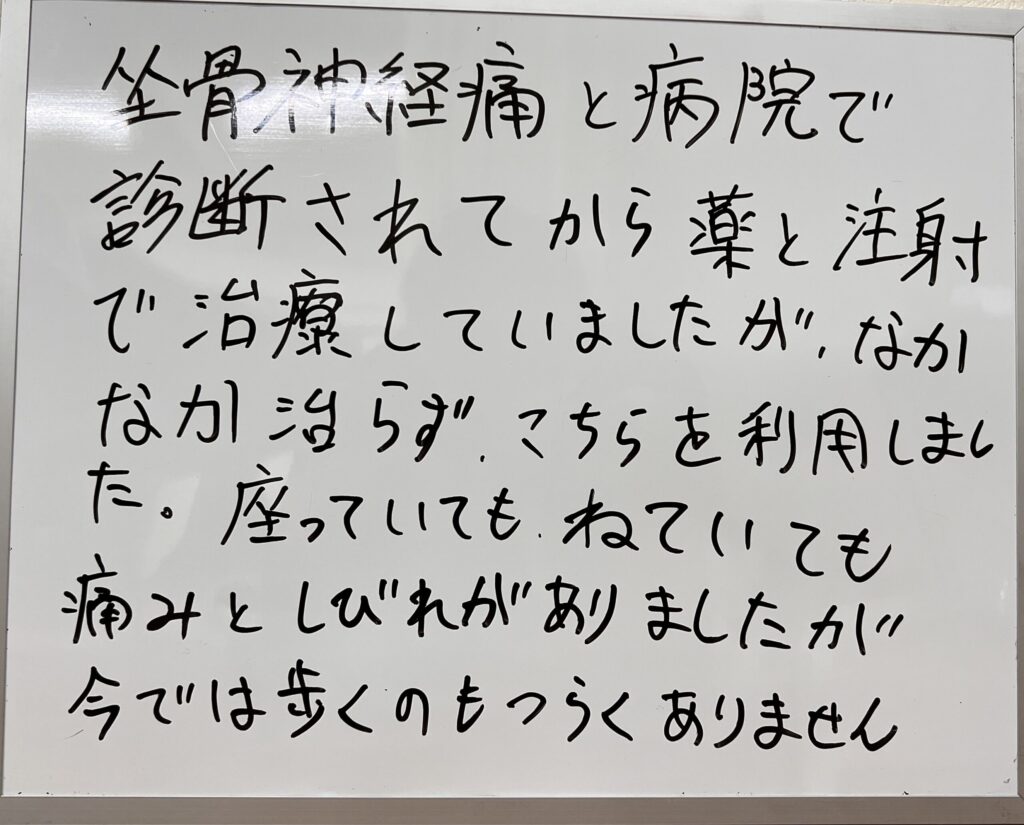 坐骨神経痛と病院で
診断されてから薬と注射
で治療していましたが、なか
なか治らず、こちらを利用しまし
た。座っていても、ねていても
痛みとしびれがありましたが
今では歩くのもつらくありません